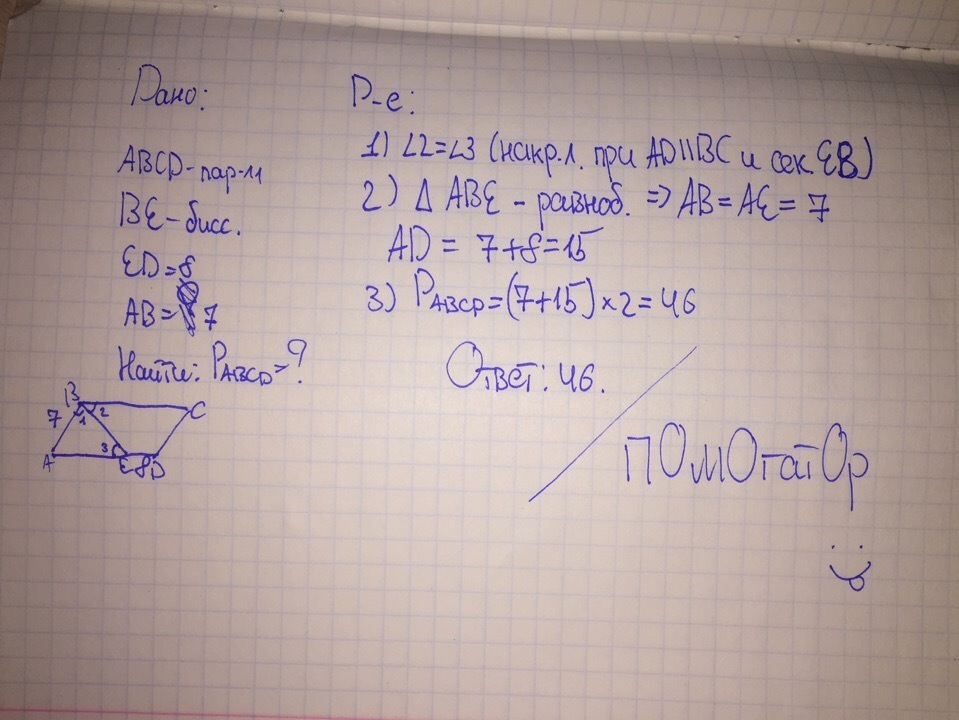 Дано:
ABCD - пар-м
BE - бисс.
ED = 8
AB = 7
Найти: PABCD = ?
Р-е:
1) ∠2=∠3 (накр.л. при AD||BC и сек EB)
2) Δ ABE - равноб. => AB = AE = 7
AD = 7+8=15
3) PABCD=(7+15)×2=46
Ответ: 46.
7 B 1 2 C
A 3 E 8 D
ПОмОгатОр